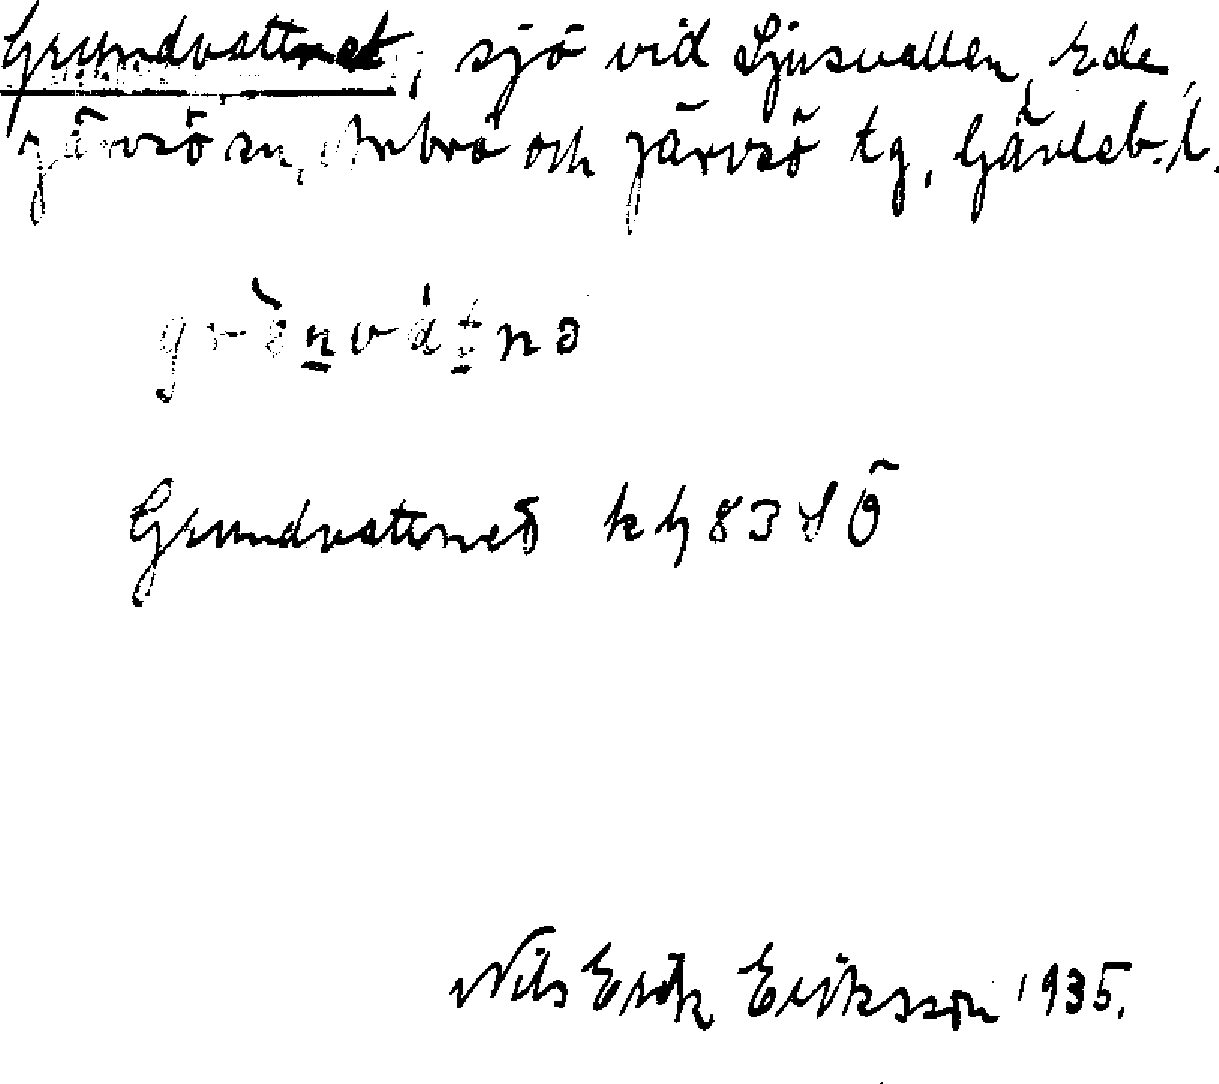 Grundvattnet, sjö vid Ljusvallen, Ede,
Järvsö sn, Arbrå och Järvsö tg, Gävleb. l.
Grundvattnet kbl 83 SÖ
Nils Erik Eriksson 1935.